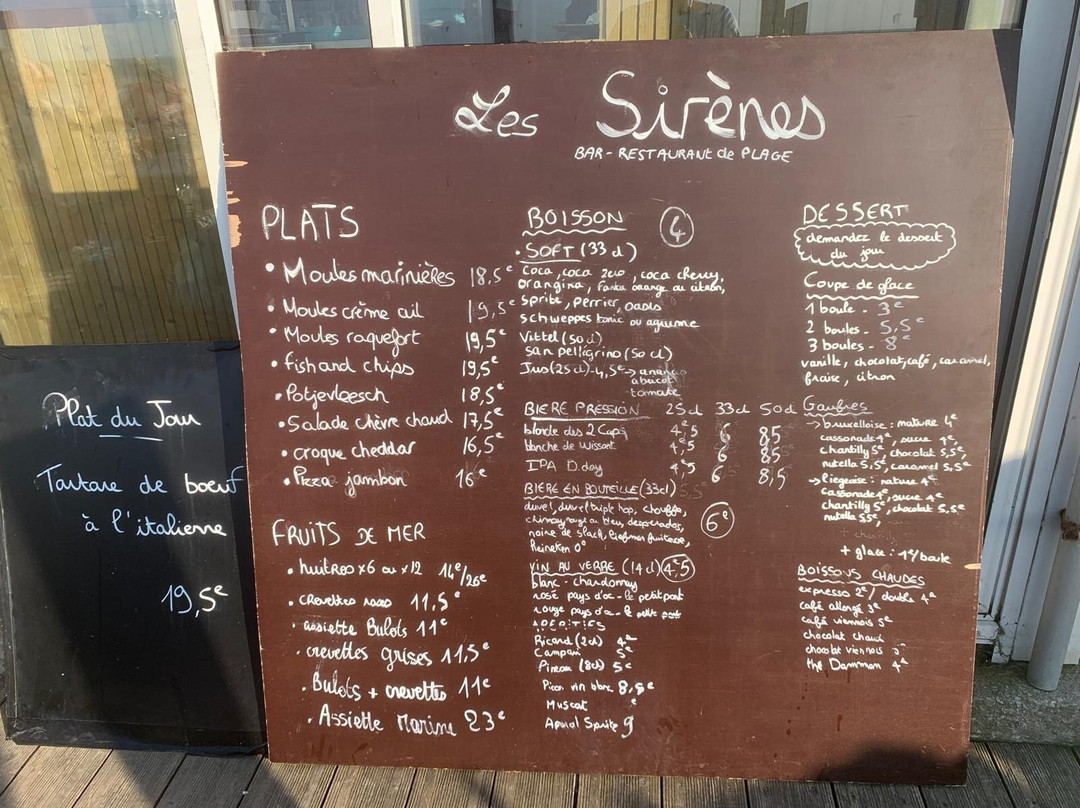 Les Sirènes
BAR - RESTAURANT de PLAGE
PLATS
• Moules marinières 18,5€
• Moules crème ail 19,5€
• Moules roquefort 19,5€
• fish and chips 19,5€
• Potjevleesch 18,5€
• Salade chèvre chaud 17,5€
• croque cheddar 16,5€
• Pizza jambon 16€
FRUITS DE MER
• huitres x6 ou x12 14€/26€
• crevettes roses 11,5€
• assiette Bulots 11€
• crevettes grises 11,5€
• Bulots + crevettes 11€
• Assiette Marine 23€
BOISSON 4
• SOFT (33 cl)
Coca, coca zero, coca cherry,
orangina, fanta orange ou citron,
sprite, Perrier, oasis
schweppes tonic ou agrume
Vittel (50 cl)
san pellegrino (50 cl)
Jus (25 cl) - 4,5€ → ananas
abricot
tomate
BIERE PRESSION 25cl 33cl 50cl
blonde des 2 Caps 4,5 6 8,5
blanche de Wissant 4,5 6 8,5
IPA D.day 4,5 6 8,5
BIERE EN BOUTEILLE (33cl) 6€
duvel, duvel triple hop, chouffe,
chimay rouge ou bleu, desperados,
naine de slack, liefman fruitesse,
heineken 0°
VIN AU VERRE (14 cl) 4,5
blanc - chardonnay
rosé pays d'oc - le petit pont
rouge pays d'oc - le petit pont
APERITIFS
Ricard (2cl) 4€
Campari 5€
Pineau (8cl) 5€
Picon vin blanc 8,5€
Muscat €
Aperol Spritz 9
DESSERT
demandez le dessert
du jour
Coupe de glace
1 boule - 3€
2 boules - 5,5€
3 boules - 8€
vanille, chocolat, café, caramel,
fraise, citron
Gaufres
→ bruxelloise : nature 4€
cassonade 4€, sucre 4€,
chantilly 5€, chocolat 5,5€,
nutella 5,5€, caramel 5,5€
→ liegeoise : nature 4€
cassonade 4€, sucre 4€
chantilly 5€, chocolat 5,5€
nutella 5,5€,
+ glace : 1€/boule
BOISSONS CHAUDES
expresso 2€/ double 4€
café allongé 3€
café viennois 5€
chocolat chaud
chocolat viennois 5€
thé Damman 4€
Plat du Jour
Tartare de boeuf
à l'italienne
19,5€